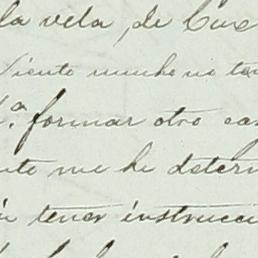 la vela, de Cue
viento mucho no ta
V.ª formar otro ca
nte me he determ
ú tener instrucci